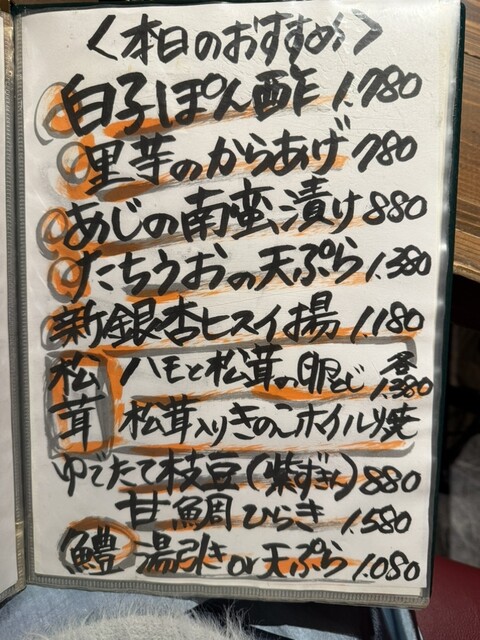 〈本日のおすすめ〉
白子ぽん酢 1.780
里芋のからあげ 780
あじの南蛮漬け 880
たちうおの天ぷら 1.380
新銀杏ヒスイ揚 1.180
松茸 ハモと松茸の卵とじ 各1.380
松茸入りきのこホイル焼
ゆでたて枝豆(紫ずきん) 880
甘鯛ひらき 1.580
鱧 湯引き or 天ぷら 1.080